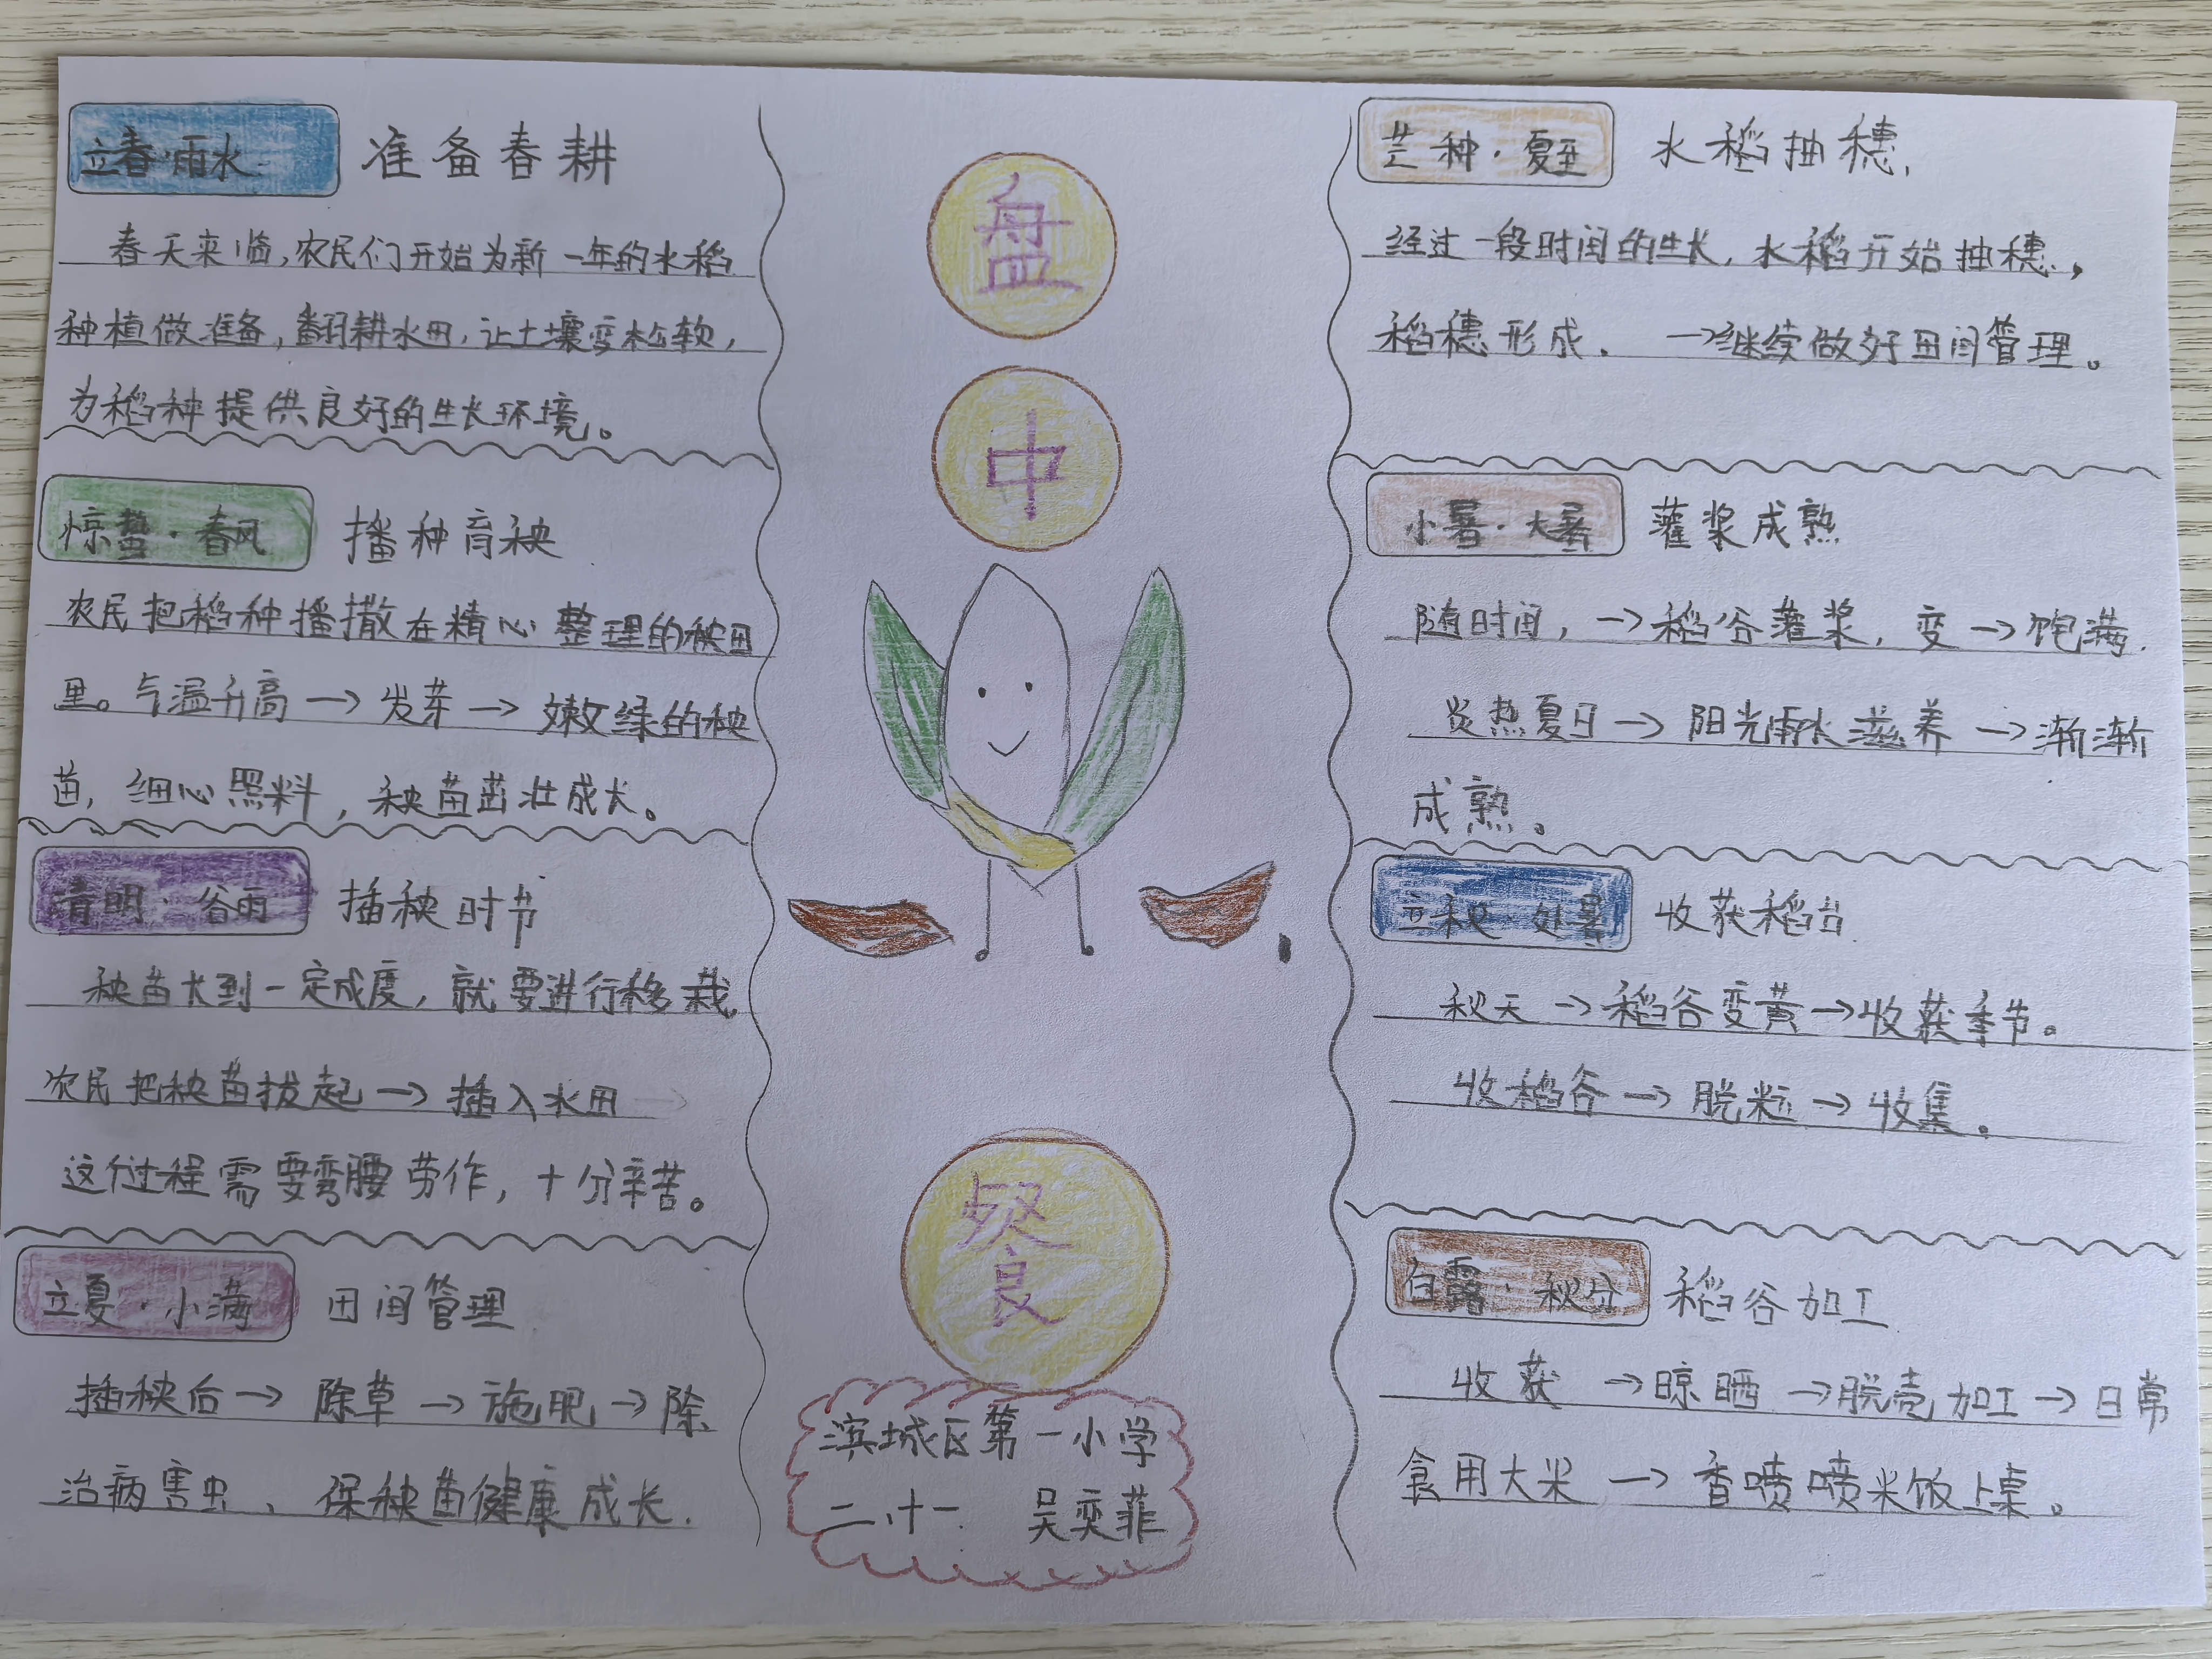 立春·雨水 准备春耕
春天来临,农民们开始为新一年的水稻
种植做准备,翻耕水田,让土壤变松软,
为稻种提供良好的生长环境。
惊蛰·春风 播种育秧
农民把稻种播撒在精心整理的秧田
里。气温升高→发芽→嫩绿的秧
苗,细心照料,秧苗茁壮成长。
清明·谷雨 插秧时节
秧苗长到一定成度,就要进行移栽.
农民把秧苗拔起→插入水田
这个过程需要弯腰劳作,十分辛苦。
立夏·小满 田间管理
插秧后→除草→施肥→除
治病害虫、保秧苗健康成长.
盘
中
餐
滨城区第一小学
二.十一 吴奕菲
芒种·夏至 水稻抽穗.
经过一段时间的生长,水稻开始抽穗,
稻穗形成. →继续做好田间管理。
小暑·大暑 灌浆成熟
随时间,→稻谷灌浆,变→饱满.
炎热夏日→阳光雨水滋养→渐渐
成熟。
立秋·处暑 收获稻谷
秋天→稻谷变黄→收获季节。
收稻谷→脱粒→收集。
白露·秋分 稻谷加工
收获→晾晒→脱壳加工→日常
食用大米→香喷喷米饭上桌。